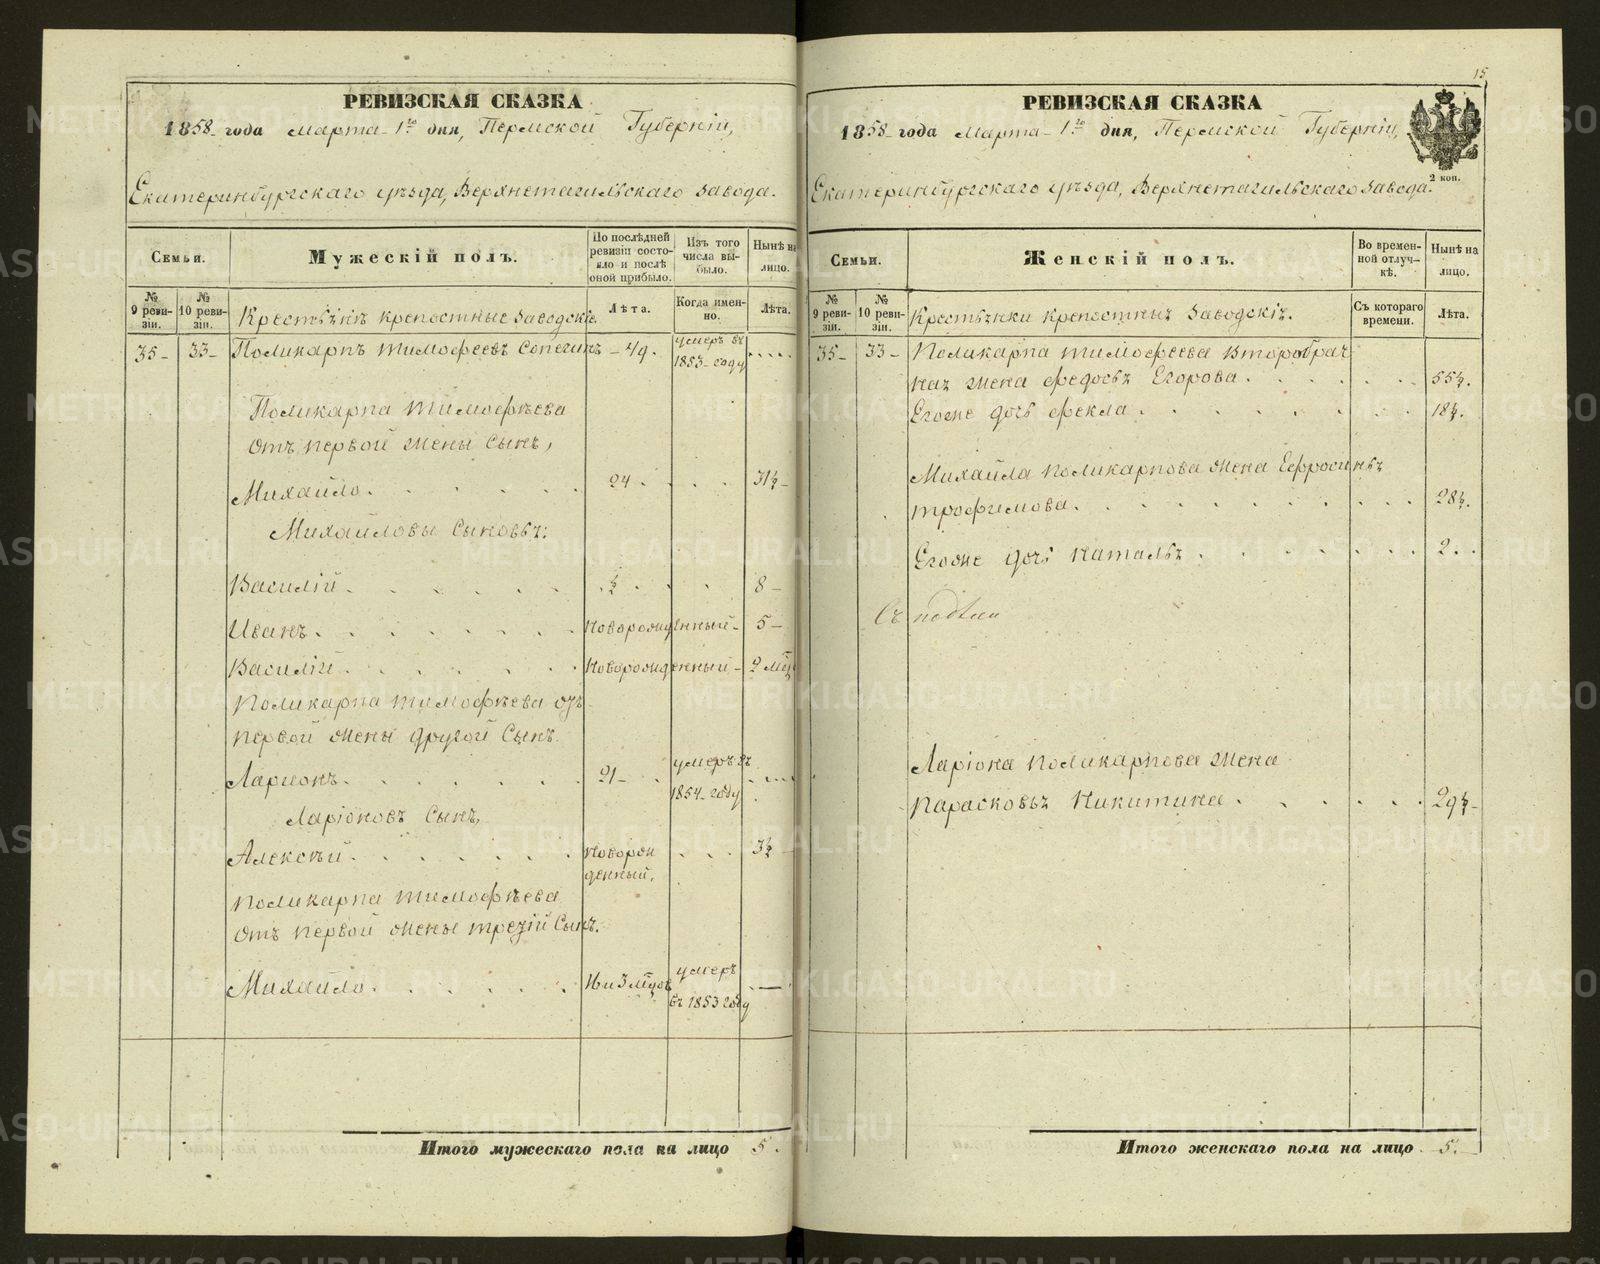 РЕВИЗСКАЯ СКАЗКА
1858 года марта 1го дня, Пермской Губерніи,
Екатеринбургскаго уѣзда, Верхнетагильскаго завода.
Семьи.
Мужескій полъ.
По послѣдней ревизіи состояло и послѣ оной прибыло.
Изъ того числа выбыло.
Нынѣ на лицо.
№ 9 ревизіи.
№ 10 ревизіи.
Крестьяне крепостные заводскіе.
Лѣта.
Когда именно.
Лѣта.
35 33 Поликарпъ Тимофеевъ 49. умеръ въ 1853 году
Поликарпа Тимофѣева
отъ первой жены сынъ,
Михайло 24 31½
Михайловы сыновья:
Василій ½ 8
Иванъ новорожденный 5
Василій новорожденный 2 мѣс
Поликарпа Тимофѣева отъ
первой жены другой сынъ
Ларионъ 21 умеръ въ 1854 году
Ларіоновъ сынъ,
Алексѣй новорожденный. 3½
Поликарпа Тимофѣева
отъ первой жены третій сынъ.
Михайло умеръ въ 1853 году
Итого мужескаго пола на лицо 5.
15
РЕВИЗСКАЯ СКАЗКА
1858 года марта 1го дня, Пермской Губерніи,
2 коп.
Екатеринбургскаго уѣзда, Верхнетагильскаго завода.
Семьи.
Женскій полъ.
Во временной отлучкѣ.
Нынѣ на лицо.
№ 9 ревизіи.
№ 10 ревизіи.
Крестьянки крепостныя заводскія.
Съ котораго времени.
Лѣта.
35 33 Поликарпа Тимофеева второбрач
ная жена Федосья Егорова 55½.
Егоже дочь Фекла 18½.
Михайла Поликарпова жена Ефросинья
Трофимова 28½.
Егоже дочь Наталья 2
Ларіона Поликарпова жена
Парасковья Никитина 29½
Итого женскаго пола на лицо 5.
METRIKI.GASO-URAL.RU